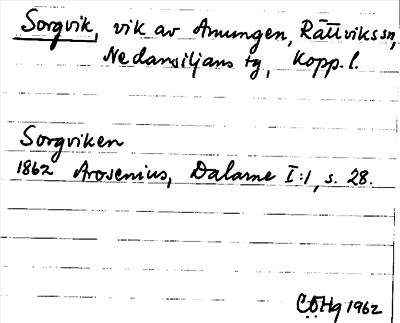 Sorgvik, vik av Amungen, Rättvikssn,
Nedansiljans tg, Kopp. l.
Sorgviken
1862 Arosenius, Dalarne I:1, s. 28.
CÖHg 1962